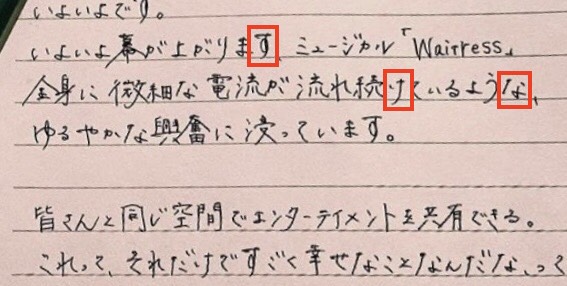 いよいよです。
いよいよ幕が上がります、ミュージカル「Waitress」
全身に微細な電流が流れ続けているような、
ゆるやかな興奮に浸っています。
皆さんと同じ空間でエンターテイメントを共有できる。
これって、それだけですごく幸せなことなんだな、って